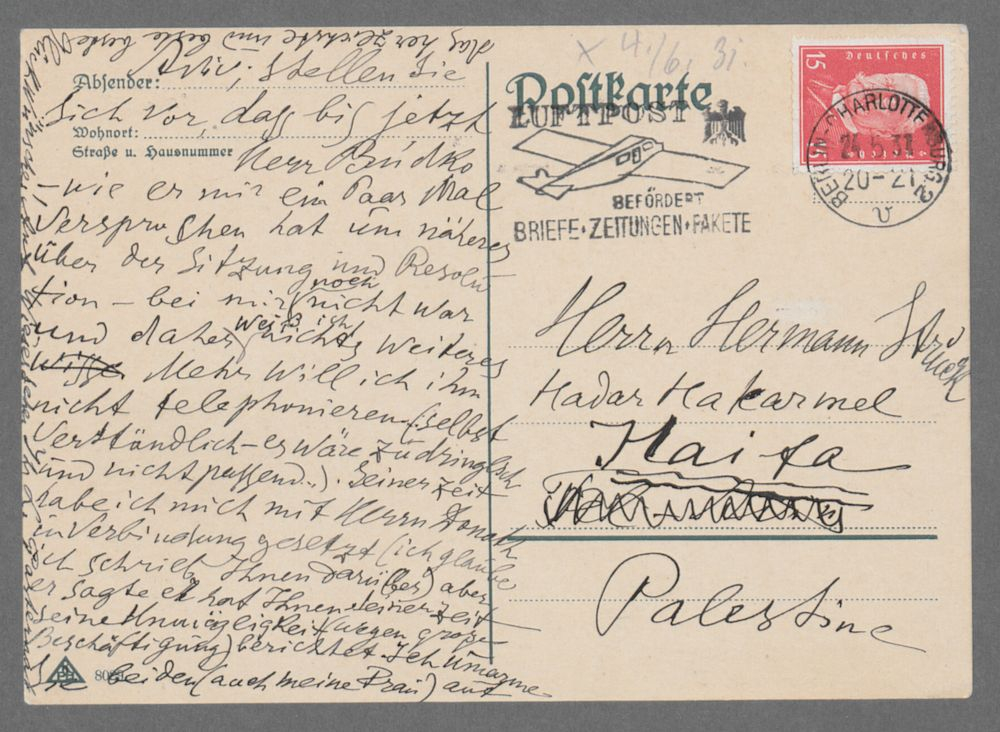 Absender:
Wohnort:
Straße u. Hausnummer
Stellen Sie
sich vor, dass bis jetzt
Herr Prudko
- wie er mir ein Paar Mal
versprochen hat um näheres
über der Sitzung und Resolu
tion - bei mir noch nicht war
und daher weiß ich nichts weiteres
Mehr will ich ihm
nicht telephonieren (selbst
verständlich - es wäre zudringlich
und nicht passend..). Seiner Zeit
habe ich mich mit Herrn Donath
in Verbindung gesetzt (ich glaube
ich schrieb Ihnen darüber) aber
er sagte er hat Ihnen seiner Zeit
seine Unmöglichkeit wegen große
Beschäftigung) berichtet. Ich umarme
Sie beiden (auch meine Frau) auf
das herzlichste und beste beste
Postkarte
x 4./6. 31.
LUFTPOST
BEFÖRDERT
BRIEFE·ZEITUNGEN·PAKETE
15
Deutsches
BERLIN-CHARLOTTENBURG 2
24.5.31
20-21
v
Herrn Hermann Struck
Hadar Hakarmel
Haifa
Palestine